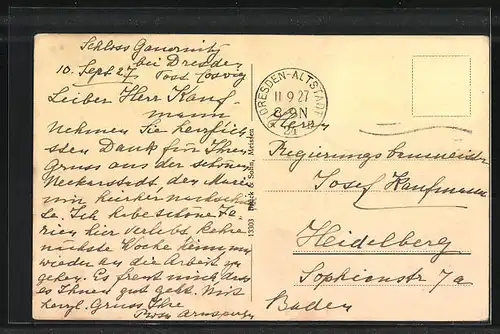 Schloss Gauernitz
bei Dresden
10. Sept 27. Post Coswig
Lieber Herr Kauf-
mann
Nehmen Sie herzlich-
sten Dank für Ihren
Gruss aus der schönen
Neckarstadt, den Marie
mir hierher nachschick-
te. Ich habe schöne Fe-
rien hier verlebt, kehre
nächste Woche
wieder an die Arbeit zu
gehen. Es freut mich, dass
es Ihnen gut geht. Mit
herzl. Gruss Ihre
Rosa
13301 Brück & Sohn, Meissen
DRESDEN-ALTSTADT
11 9 27
8-9N
Herrn
Regierungsbaumeister
Josef Kaufmann
Heidelberg
Sophienstr 7a
Baden